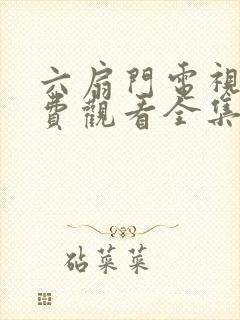 六扇門電視
費觀看全集
砧菜菜